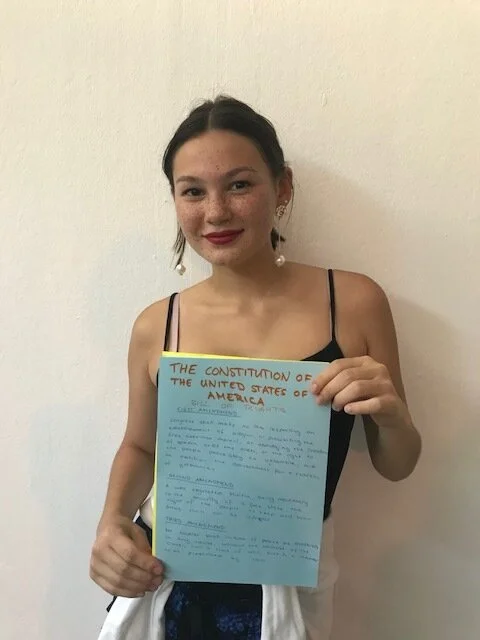 THE CONSTITUTION OF
THE UNITED STATES OF
AMERICA
BILL OF RIGHTS
FIRST AMENDMENT
Congress shall make no law respecting an
establishment of religion or prohibiting the
free exercise
of speech
the people peaceably to assemble, and
to petition the government for a redress
of grievances
SECOND AMENDMENT
A well regulated militia, being necessary
to the security of a free state, the
right of the people to keep and bear
arms shall not be infringed
THIRD AMENDMENT
No soldier shall
in any house, without the consent of the
owner, nor in time of war, but in a manner
to be prescribed by law